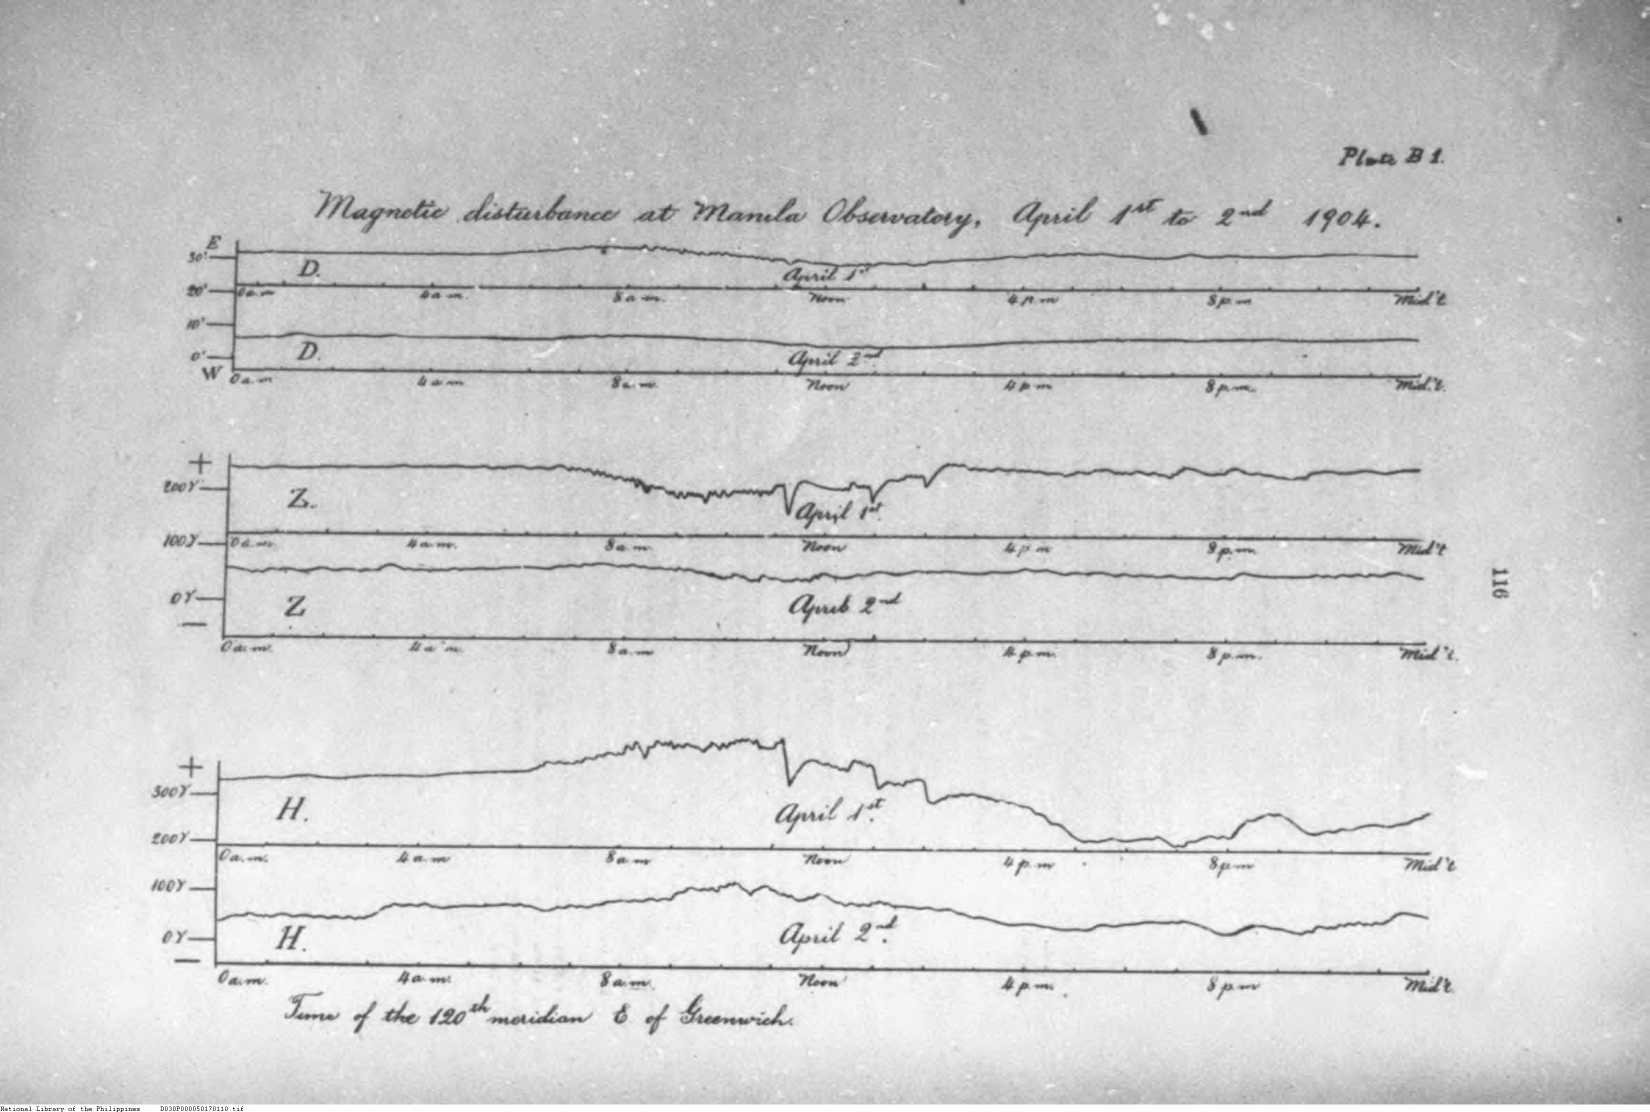 Plate B 1.
Magnetic disturbance at Manila Observatory, April 1st to 2nd 1904.
E
30'
D.
April 1st
20'
0 a.m 4 a.m. 8 a.m. Noon 4 p.m 8 p.m Mid't
10'
D.
0'
April 2nd
W
0 a.m 4 a.m 8 a.m. Noon 4 p.m 8 p.m. Mid't.
+
200γ
Z.
April 1st
100γ
0 a.m. 4 a.m. 8 a.m. Noon 4 p.m 8 p.m. Mid't
116
0γ
Z
April 2nd
—
0 a.m. 4 a.m. 8 a.m Noon 4 p.m. 8 p.m. Mid't.
+
300γ
H.
April 1st.
200γ
0 a.m. 4 a.m 8 a.m Noon 4 p.m 8 p.m Mid't
100γ
H.
April 2nd.
0γ
—
0 a.m. 4 a.m. 8 a.m. Noon 4 p.m. 8 p.m Mid't.
Time of the 120th meridian E of Greenwich.
National Library of the Philippines D030P000050170110.tif